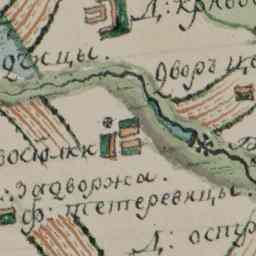 Д: криво
джцы.
дворъ це
восѣлки
: задворжа.
ф: тетеревицы.
Д: оспу